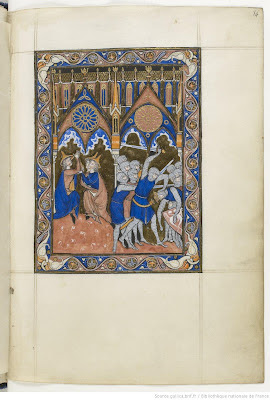 Source gallica.bnf.fr / Bibliothèque nationale de France